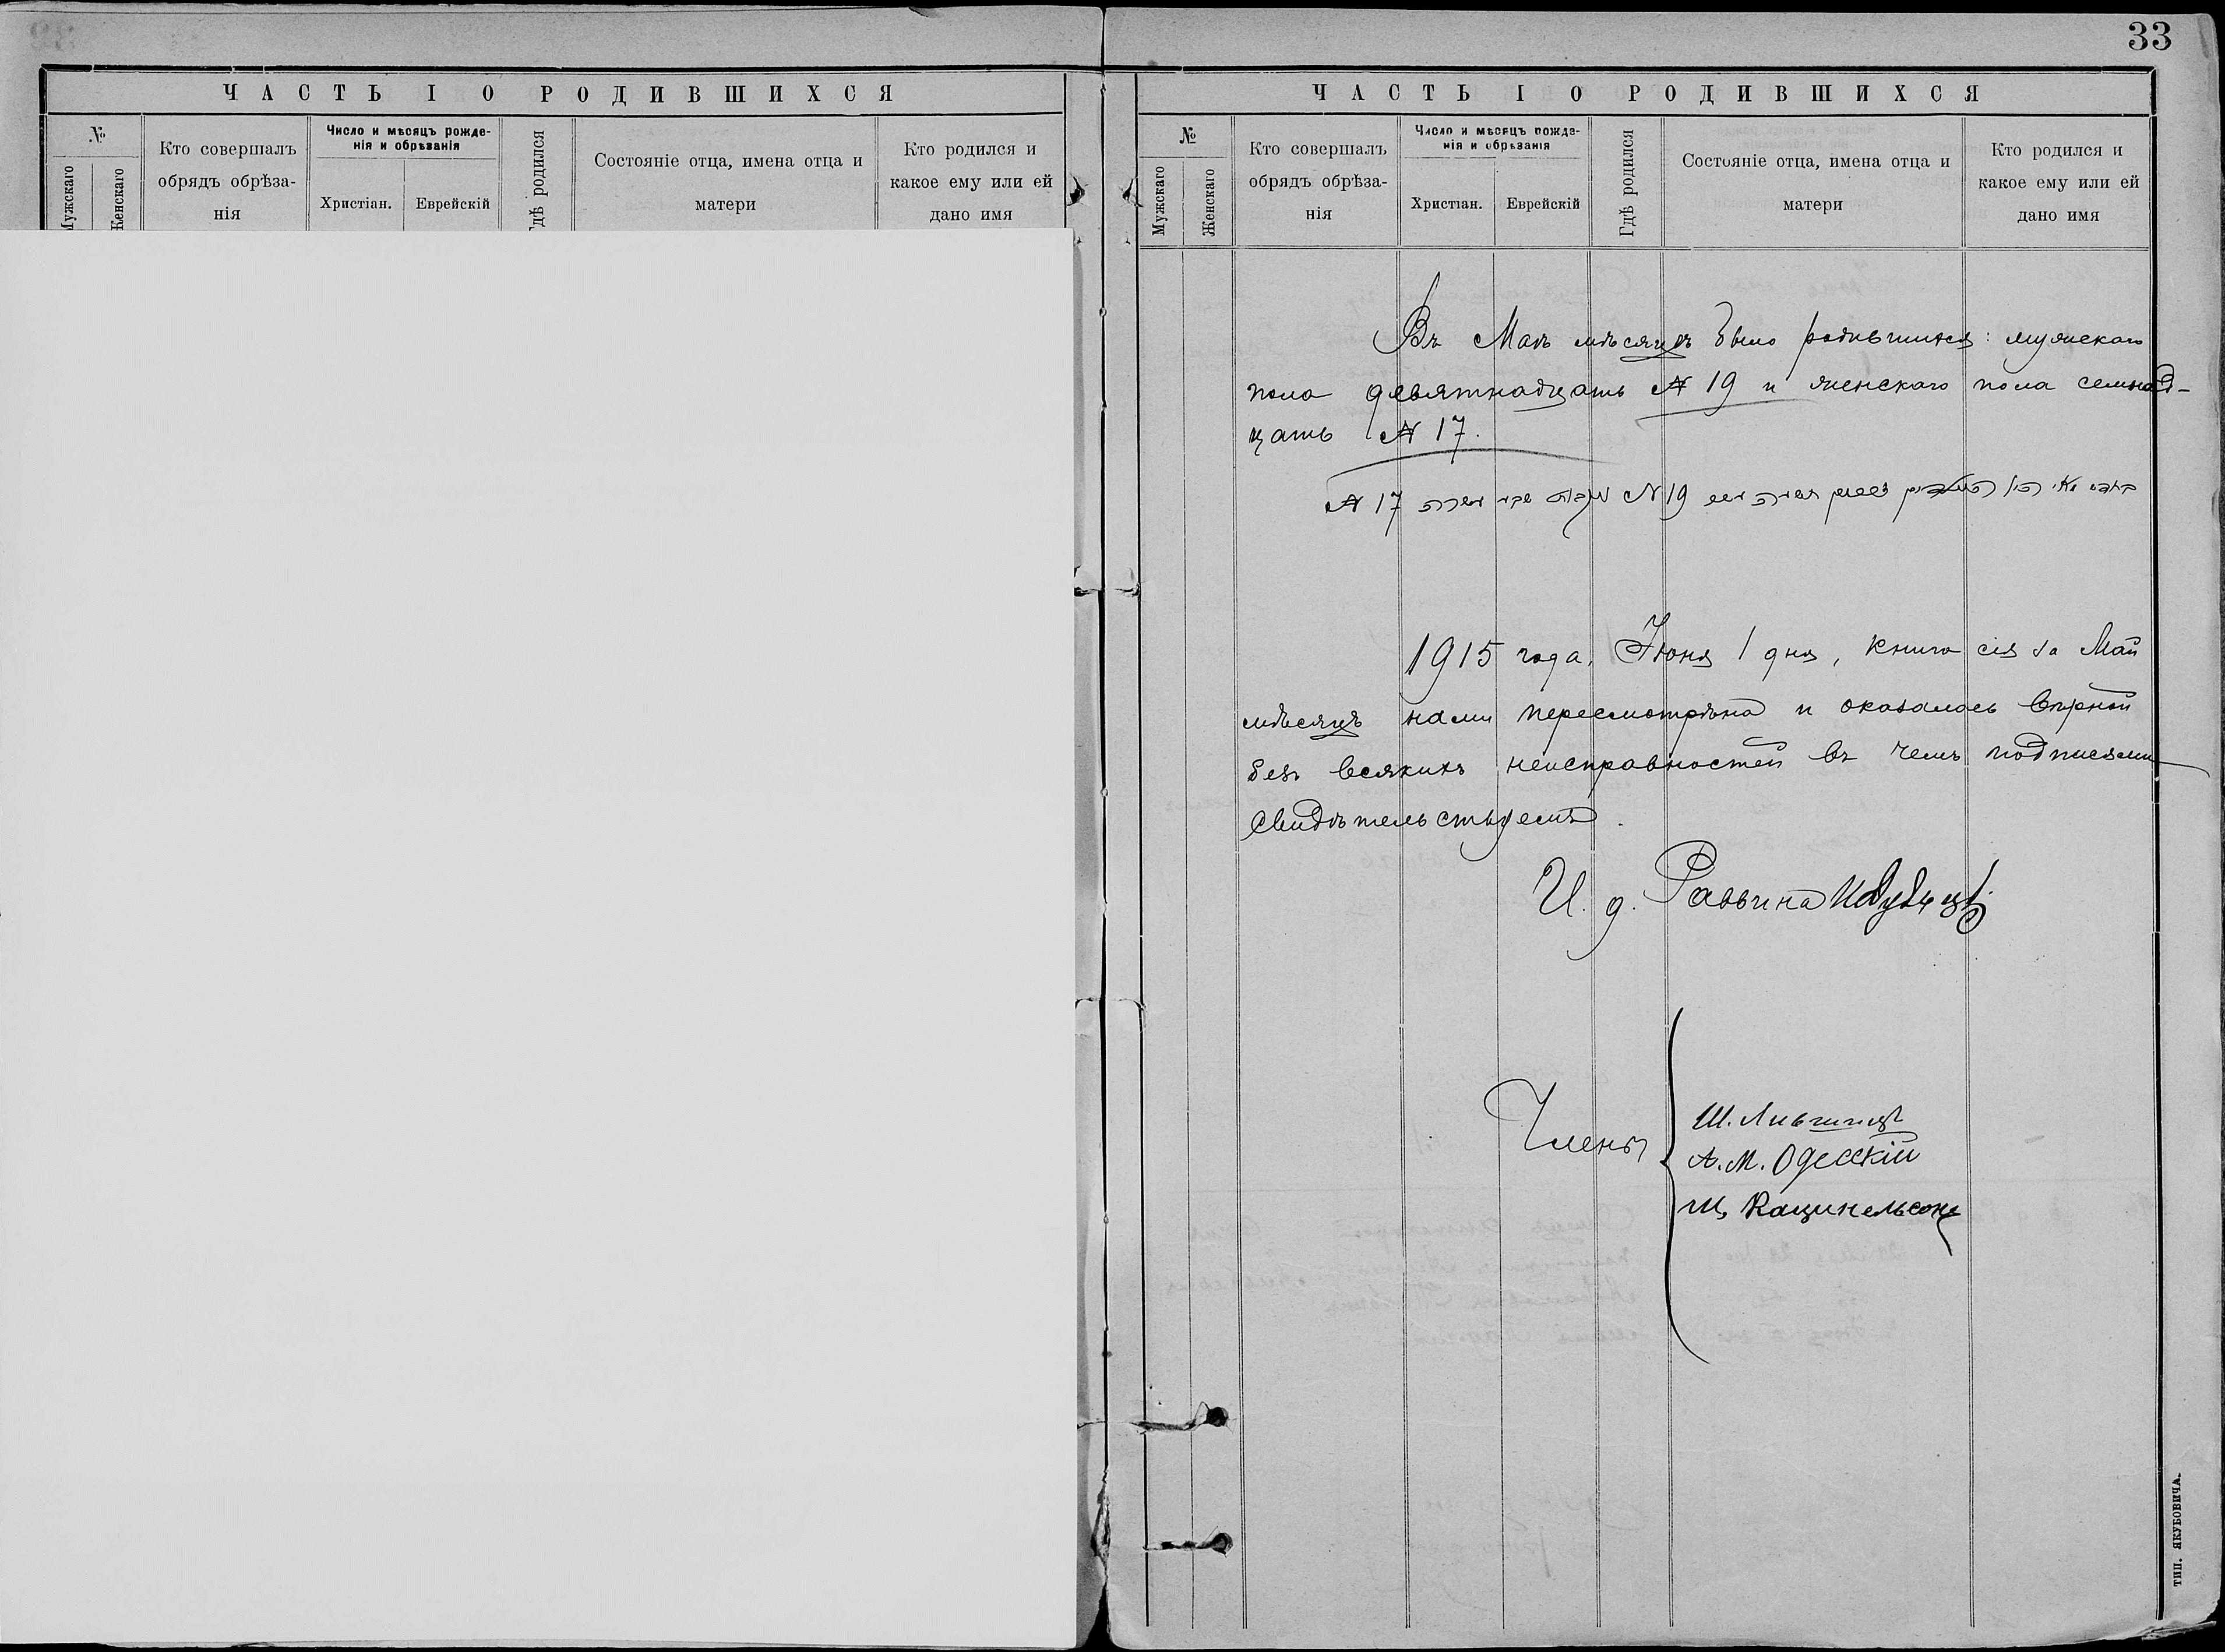 33
ЧАСТЬ I О РОДИВШИХСЯ
№
Мужскаго
Женскаго
Кто совершалъ
обрядъ обрѣза-
нія
Число и мѣсяцъ рожде-
нія и обрѣзанія
Христіан.
Еврейскій
Гдѣ родился
Состояніе отца, имена отца и
матери
Кто родился и
какое ему или ей
дано имя
ЧАСТЬ I О РОДИВШИХСЯ
№
Мужскаго
Женскаго
Кто совершалъ
обрядъ обрѣза-
нія
Число и мѣсяцъ рожде-
нія и обрѣзанія
Христіан.
Еврейскій
Гдѣ родился
Состояніе отца, имена отца и
матери
Кто родился и
какое ему или ей
дано имя
Въ Маѣ мѣсяцѣ было родившихся: мужскаго
пола девятнадцать № 19 и женскаго пола семнад-
цать № 17.
№ 19 № 17
1915 года, Іюня 1 дня, книга сія за Май
мѣсяцъ нами пересмотрѣна и оказалась вѣрной
безъ всякихъ неисправностей въ чемъ подписями
свидѣтельствуемъ.
И. д. Раввина
Члены
Ш. Лившицъ
А. М. Одесскій
Ш. Кацинельсонъ
ТИП. ЯКУБОВИЧА.